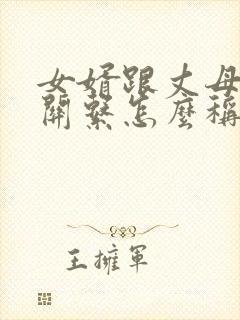 女婿跟丈母
關繫怎麼稱
王擁軍